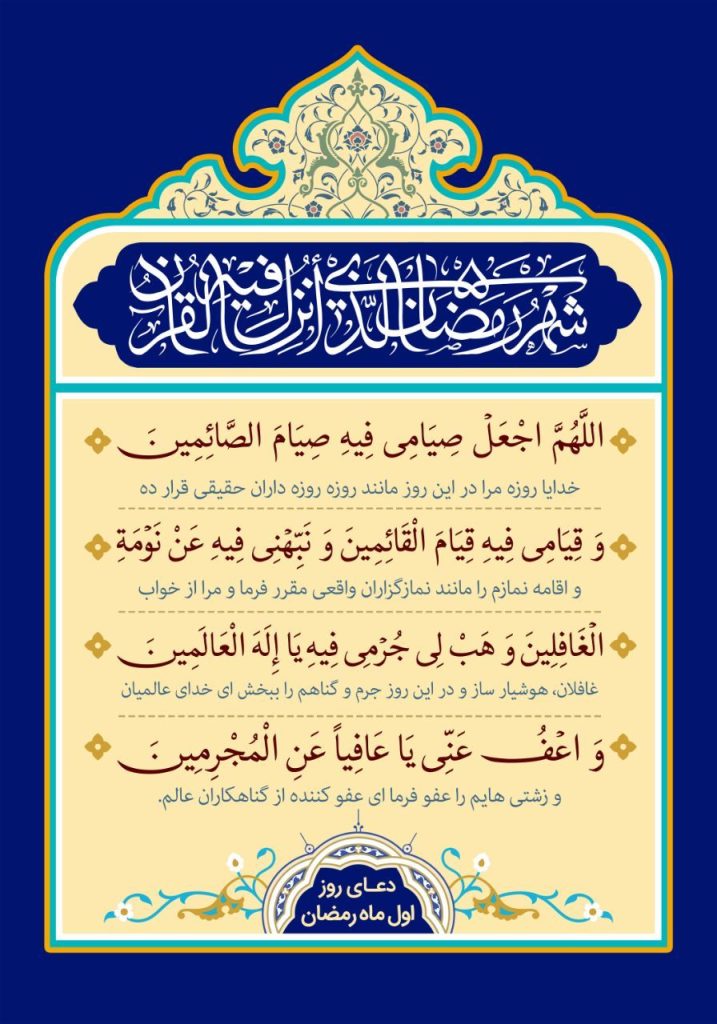 شَهْرُ رَمَضَانَ الَّذِي أُنْزِلَ فِيهِ الْقُرْآنُ
اللَّهُمَّ اجْعَلْ صِيَامِى فِيهِ صِيَامَ الصَّائِمِينَ
خدایا روزه مرا در این روز مانند روزه روزه داران حقیقی قرار ده
وَ قِيَامِى فِيهِ قِيَامَ الْقَائِمِينَ وَ نَبِّهْنِى فِيهِ عَنْ نَوْمَةِ
و اقامه نمازم را مانند نمازگزاران واقعی مقرر فرما و مرا از خواب
الْغَافِلِينَ وَ هَبْ لِى جُرْمِى فِيهِ يَا إِلَهَ الْعَالَمِينَ
غافلان، هوشیار ساز و در این روز جرم و گناهم را ببخش ای خدای عالمیان
وَ اعْفُ عَنِّى يَا عَافِياً عَنِ الْمُجْرِمِينَ
و زشتی هایم را عفو فرما ای عفو کننده از گناهکاران عالم.
دعـای روز
اول ماه رمضان